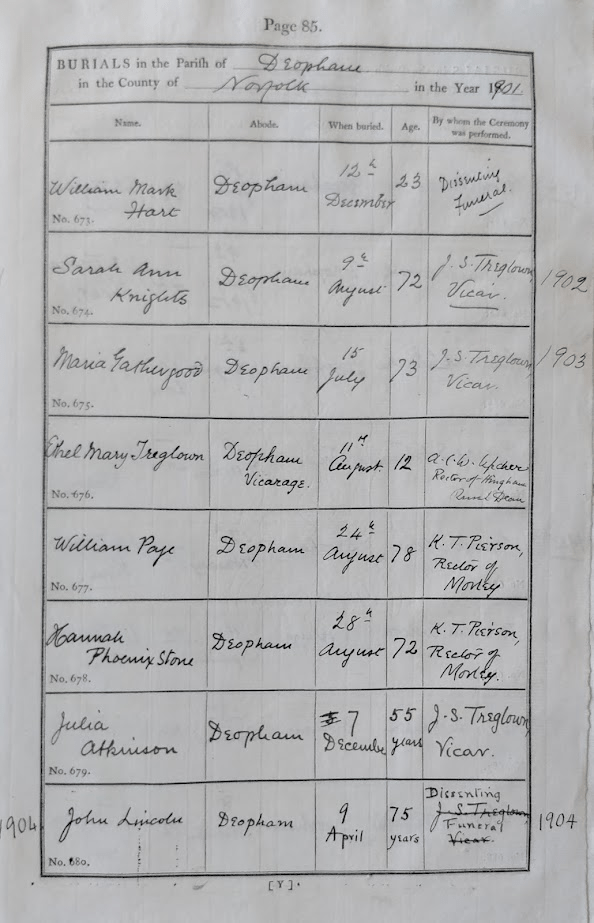 Page 85.
BURIALS in the Parish of Deopham
in the County of Norfolk in the Year 1901
Name. Abode. When buried. Age. By whom the Ceremony was performed.
William Mark Deopham 12th 23 Dissenting
Hart December Funeral.
No. 673.
Sarah Ann Deopham 9th 72 J. S. Treglown, 1902
Knights August Vicar.
No. 674.
Maria Gathergood Deopham 15 73 J. S. Treglown, 1903
July Vicar.
No. 675.
Ethel Mary Treglown Deopham 11th 12 A. C. W. Upcher
Vicarage. August. Rector of Hingham
No. 676. Rural Dean
William Page Deopham 24th 78 K. T. Pierson,
August Rector of
No. 677. Morley
Hannah Deopham 28th 72 K. T. Pierson,
Phoenix Stone August Rector of
No. 678. Morley.
Julia Deopham 7 55 J. S. Treglown,
Atkinson December years Vicar.
No. 679.
Dissenting
1904 John Lincoln Deopham 9 75 J. S. Treglown 1904
April years Funeral
No. 680. Vicar.
[Y].